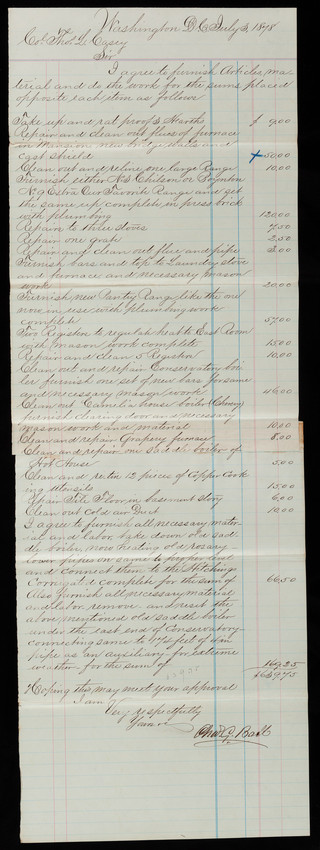 Washington D.C. July 3, 1878
Col. Thos. L. Casey
Sir
I agree to furnish Articles, ma-
terial and do the work for the sums placed
opposite each item as follows
Take up and rat proof 3 Hearths $ 9.00
Repair and clean out flues of furnace
in Mansion new bridge and
cast shield 50.00
Clean out and reline one large Range 10.00
Furnish either No 8 Chilson or Boynton
No 9 Extra Our Favorite Range and set
the same up complete in press brick
with plumbing 120.00
Repair to three stoves 7.50
Repair one grate 2.50
Repair and clean out flue and pipe 3.00
Furnish bars and top to Laundry stove
and furnace and necessary mason
work 20.00
Furnish new Pantry Range like the one
now in use with plumbing work
complete 57.00
Two Registers to regulate heat to East Room
with mason work complete 15.00
Repair and clean 5 Registers 10.00
Clean out and repair Conservatory boi-
ler furnish one set of new bars for same
and necessary mason work 46.00
Clean out Camelia house boiler
furnish clean door and necessary
mason work and material 10.00
Clean and repair Grapery furnace 8.00
Clean and repair one Saddle boiler of
Hot House 5.00
Clean and retin 12 pieces of Copper Cook
ing Utensils 15.00
Repair Tile Floor in basement story 6.00
Clean out cold air Duct 10.00
I agree to furnish all necessary mater-
ial and labor, take down old sad-
dle boiler, now heating old rosary
lower pipes on same to proper level
and connect them to the Hitchings
Corrugated complete for the sum of 66.50
Also furnish all necessary material
and labor remove and reset the
above mentioned old saddle boiler
under the east end of Conservatory
connecting same to feet of
pipe as an auxiliary for extreme
weather for the sum of
Hoping this may meet your approval
I am
Very respectfully
Yours